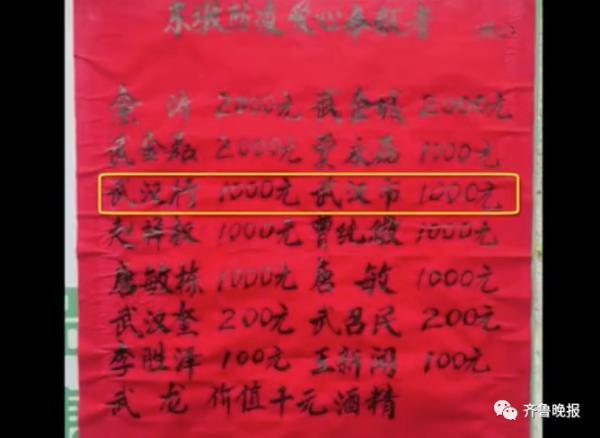 防疫爱心奉献者
2000元 武金城 2000元
武金磊 2000元 贾永磊 1000元
武汉 1000元 武汉市 1000元
1000元 1000元
唐敏栋 1000元 唐敏 1000元
武汉奎 200元 武召民 200元
李胜泽 100元 王新闻 100元
武龙 价值千元酒精
齐鲁晚报